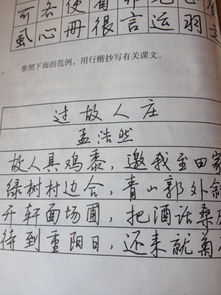 可各使
風心册很言运羽
参照下面的范例，用行楷抄写有关课文。
过故人庄
孟浩然
故人具鸡黍，邀我至田家
绿树村边合，青山郭外斜
开轩面场圃，把酒话桑麻
待到重阳日，还来就菊